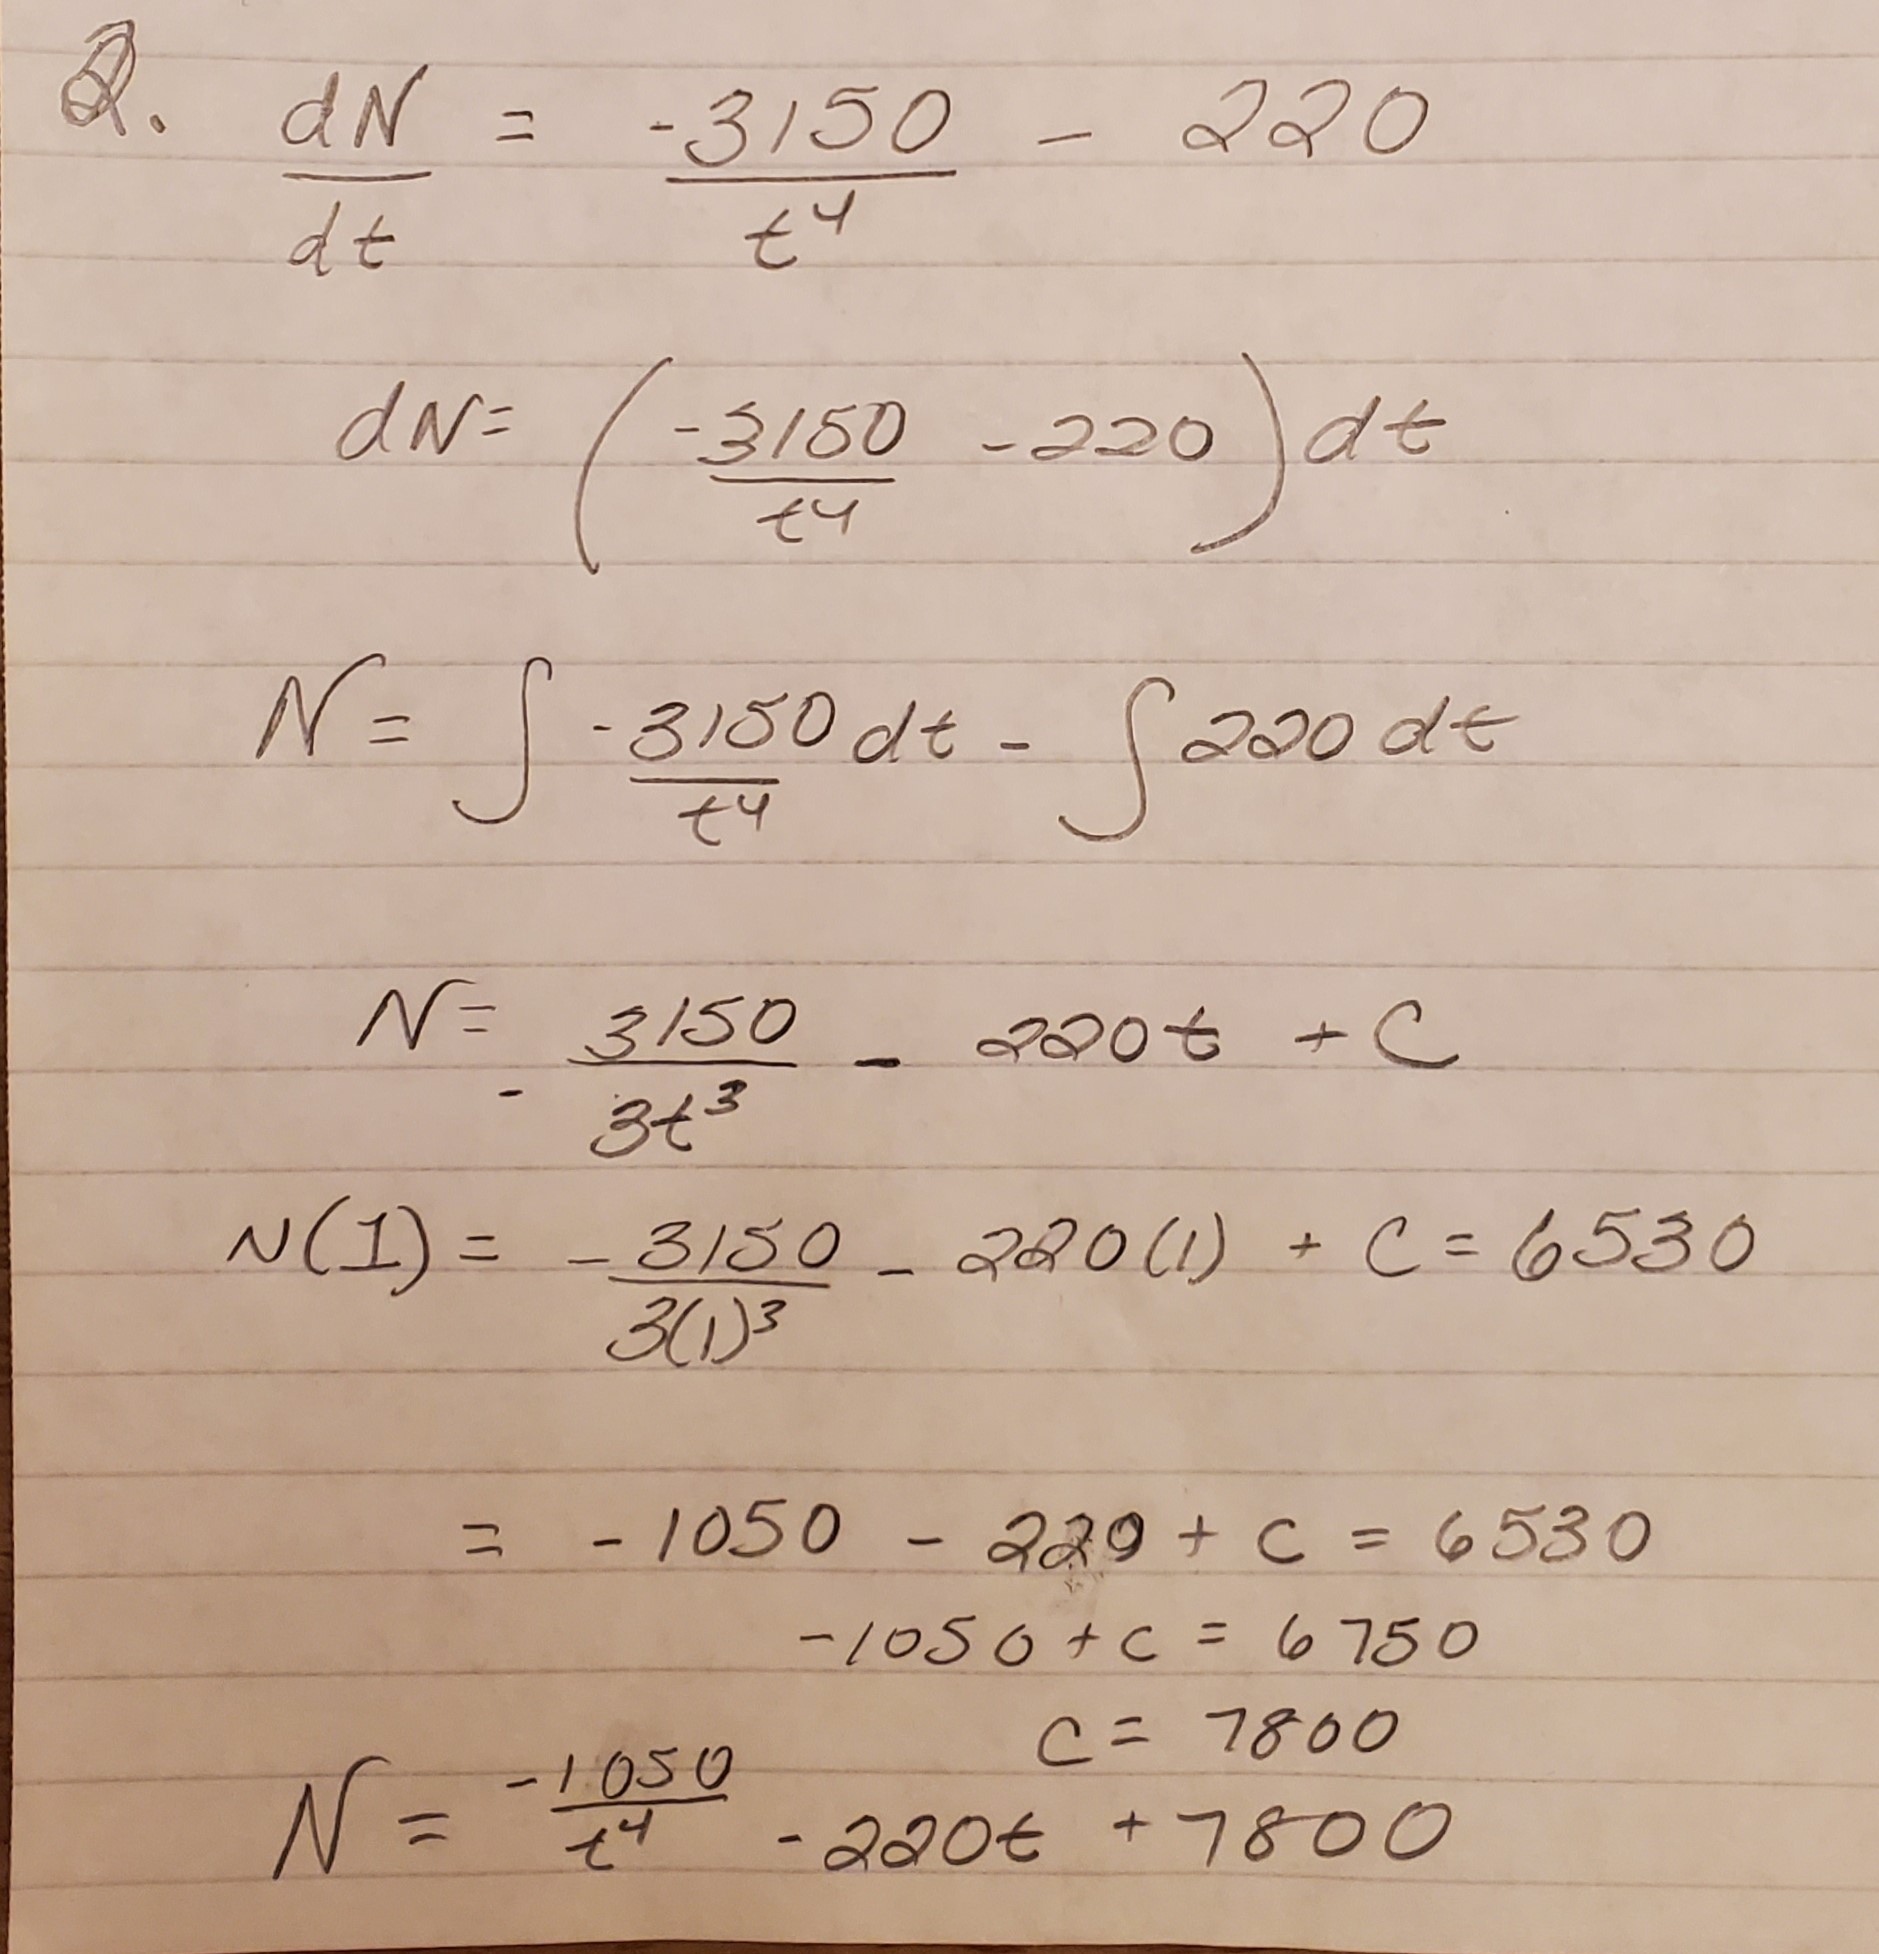 2. dN/dt = -3150/t⁴ - 220
dN = (-3150/t⁴ - 220) dt
N = ∫ -3150/t⁴ dt - ∫ 220 dt
N = - 3150/3t³ - 220t + C
N(1) = - 3150/3(1)³ - 220(1) + C = 6530
= -1050 - 220 + C = 6530
-1050 + C = 6750
C = 7800
N = -1050/t⁴ - 220t + 7800